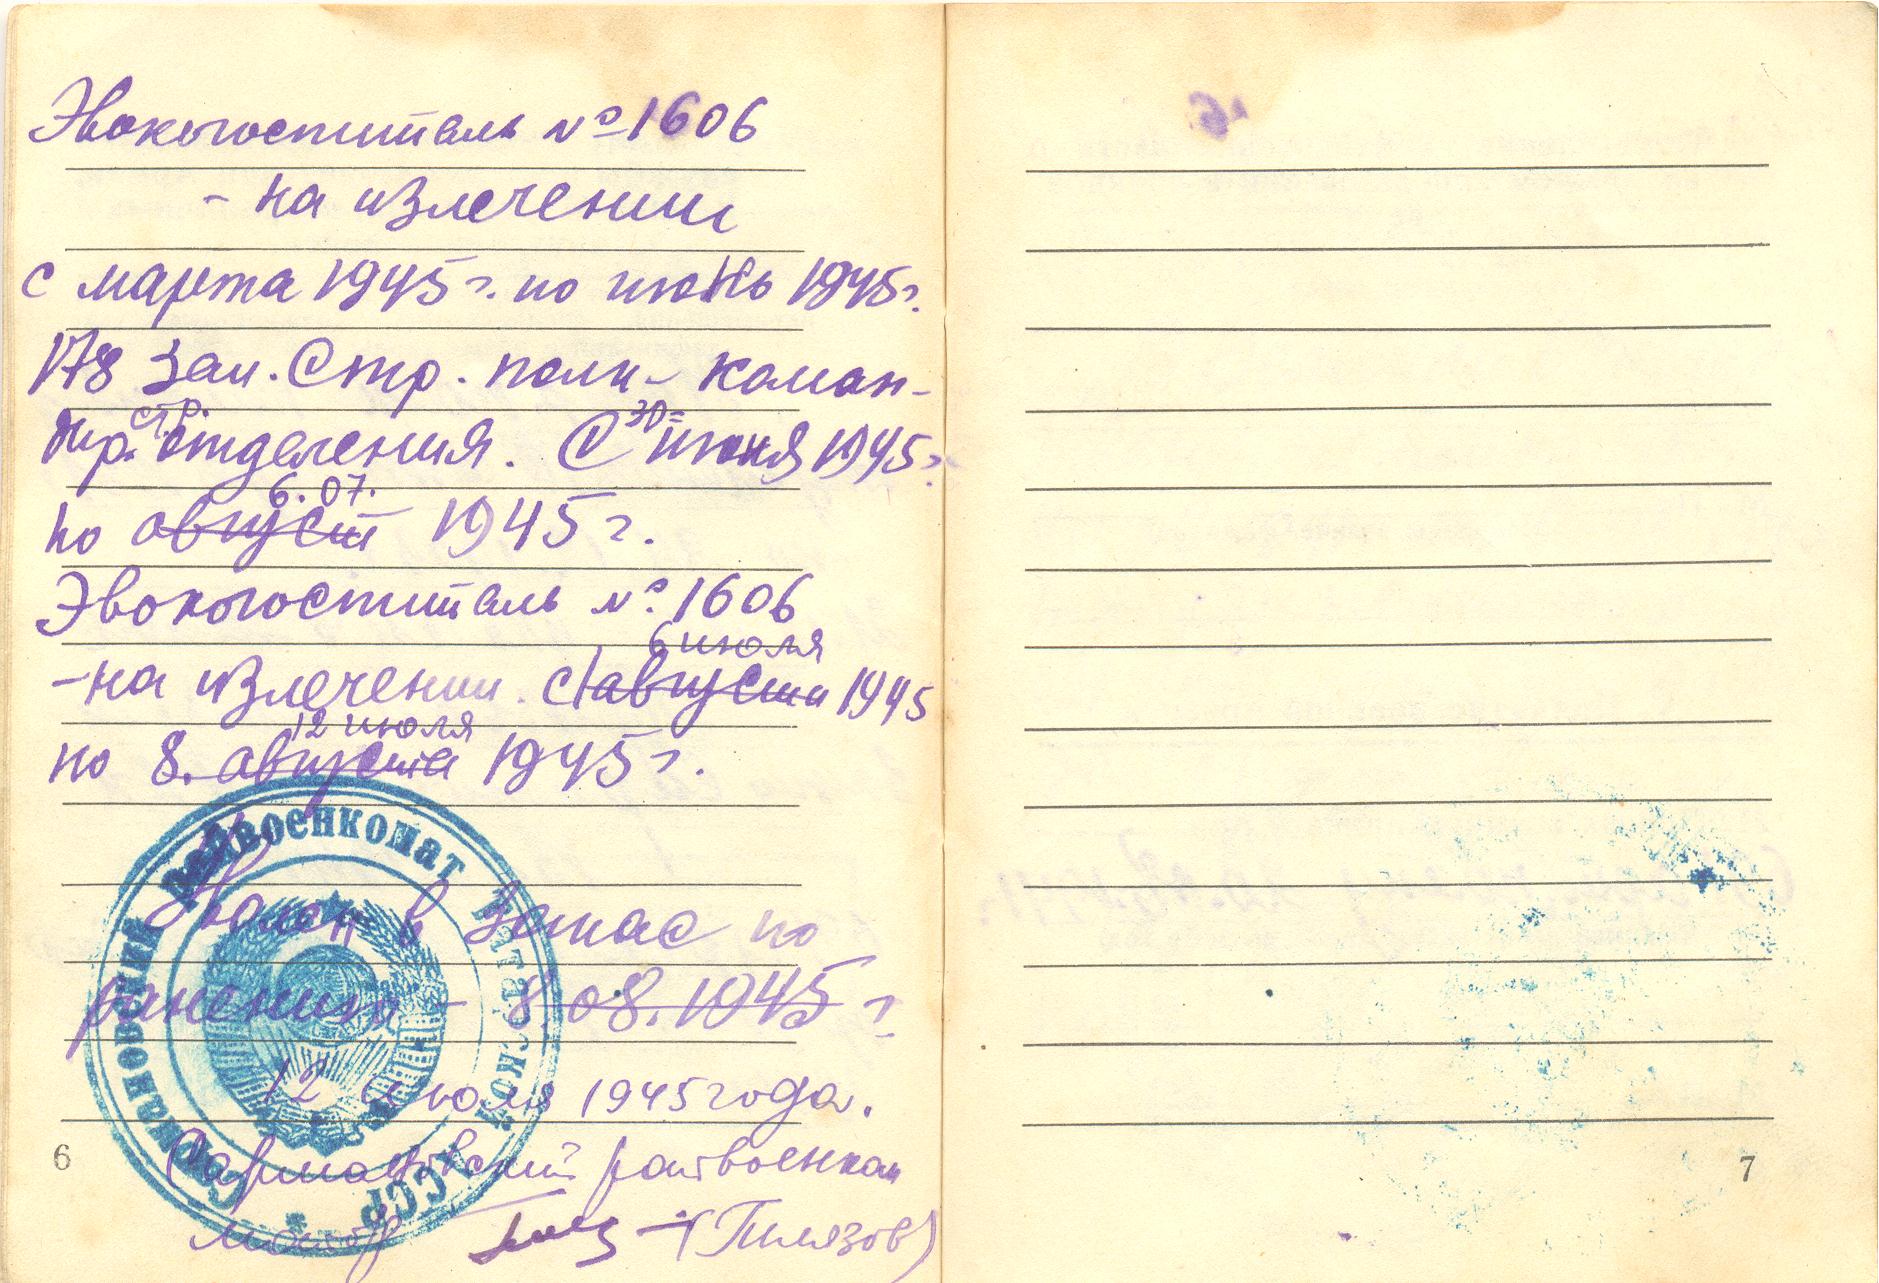 Эвокогоспиталь № 1606
- на излечении
с марта 1945 г. по июнь 1945 г.
178 Зап. Стр. полк - коман-
дир. стр. отделения. С 30= июня 1945 г.
6.07.
по август 1945 г.
Эвокогоспиталь № 1606
6 июля
- на излечении. с 1 августа 1945
12 июля
по 8. августа 1945 г.
Уволен в Запас по
ранению - 8.08.1945 г
12 июля 1945 года.
Сармановский райвоенком
майор (Гилязов)
Сармановский Райвоенкомат Татарской АССР
6
7